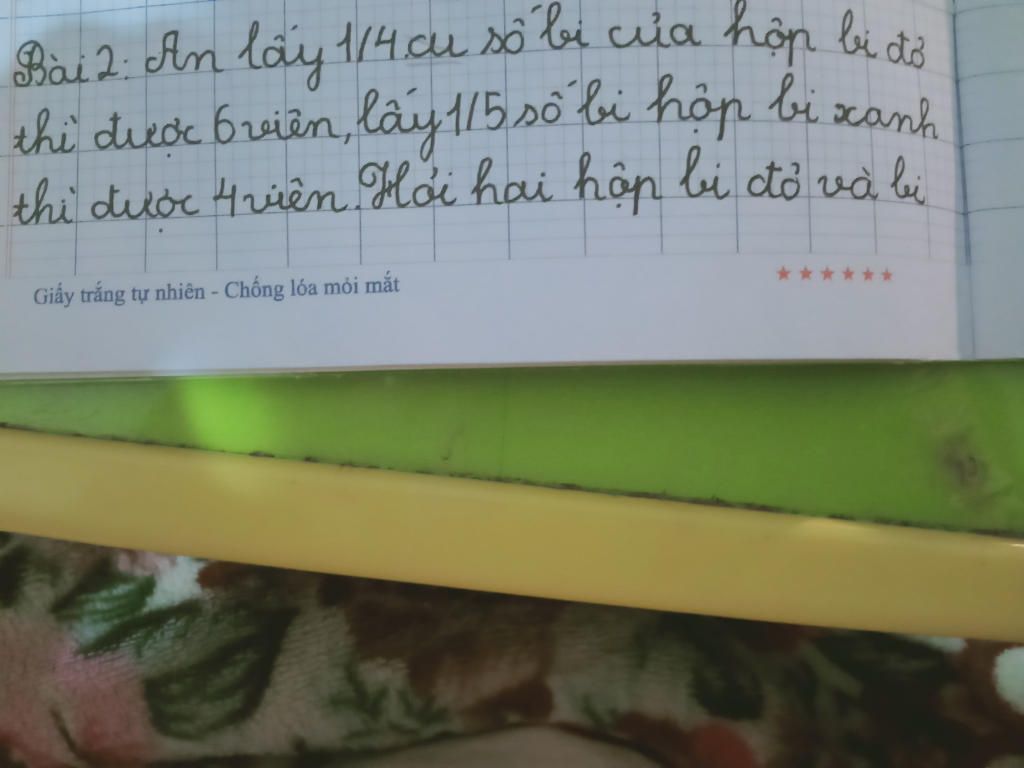 Bài 2: An lấy 1/4.cu số bi của hộp bi đỏ
thì được 6 viên, lấy 1/5 số bi hộp bi xanh
thì được 4 viên. Hỏi hai hộp bi đỏ và bi
Giấy trắng tự nhiên - Chống lóa mỏi mắt